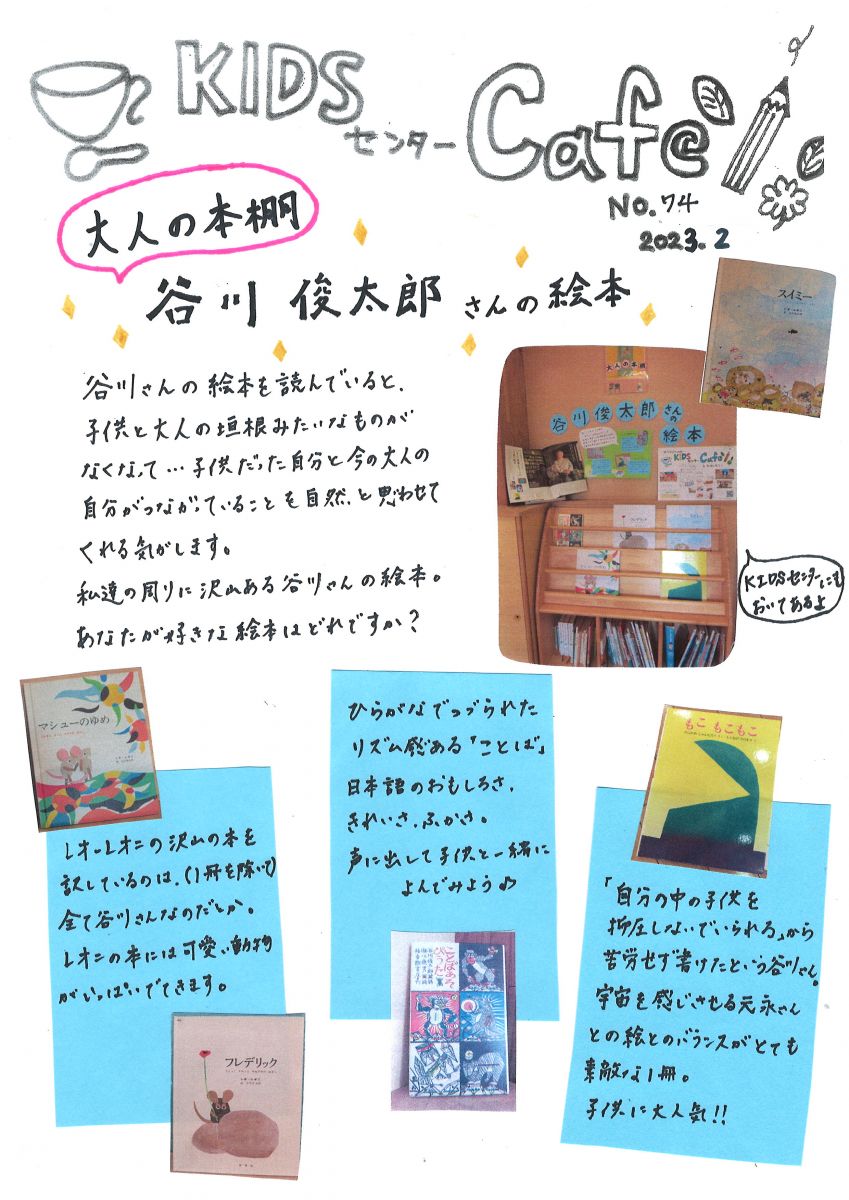 KIDS
センター
Cafe
No.74
2023.2
大人の本棚
谷川 俊太郎 さんの 絵本
谷川さんの 絵本を読んでいると、
子供と大人の垣根みたいなものが
なくなって…子供だった自分と今の大人の
自分がつながっていることを自然と思わせて
くれる気がします。
私達の周りに沢山ある谷川さんの絵本。
あなたが好きな絵本はどれですか？
スイミー
大人の本棚
谷川俊太郎さんの
絵本
KIDS
Cafe
フレデリック
KIDSセンターにも
おいてあるよ
マシューのゆめ
レオ・レオニの沢山の本を
訳しているのは、(1冊を除いて)
全て谷川さんなのだとか。
レオニの本には可愛い動物
がいっぱいでてきます。
フレデリック
ひらがなでつづられた
リズム感ある「ことば」
日本語のおもしろさ、
きれいさ、ふかさ。
声に出して子供と一緒に
よんでみよう♪
ことばあそ
びうた
もこ もこもこ
「自分の中の子供を
抑圧しないでいられる」から
苦労せず書けたという谷川さん。
宇宙を感じさせる元永さん
との絵とのバランスがとても
素敵な1冊。
子供に大人気!!